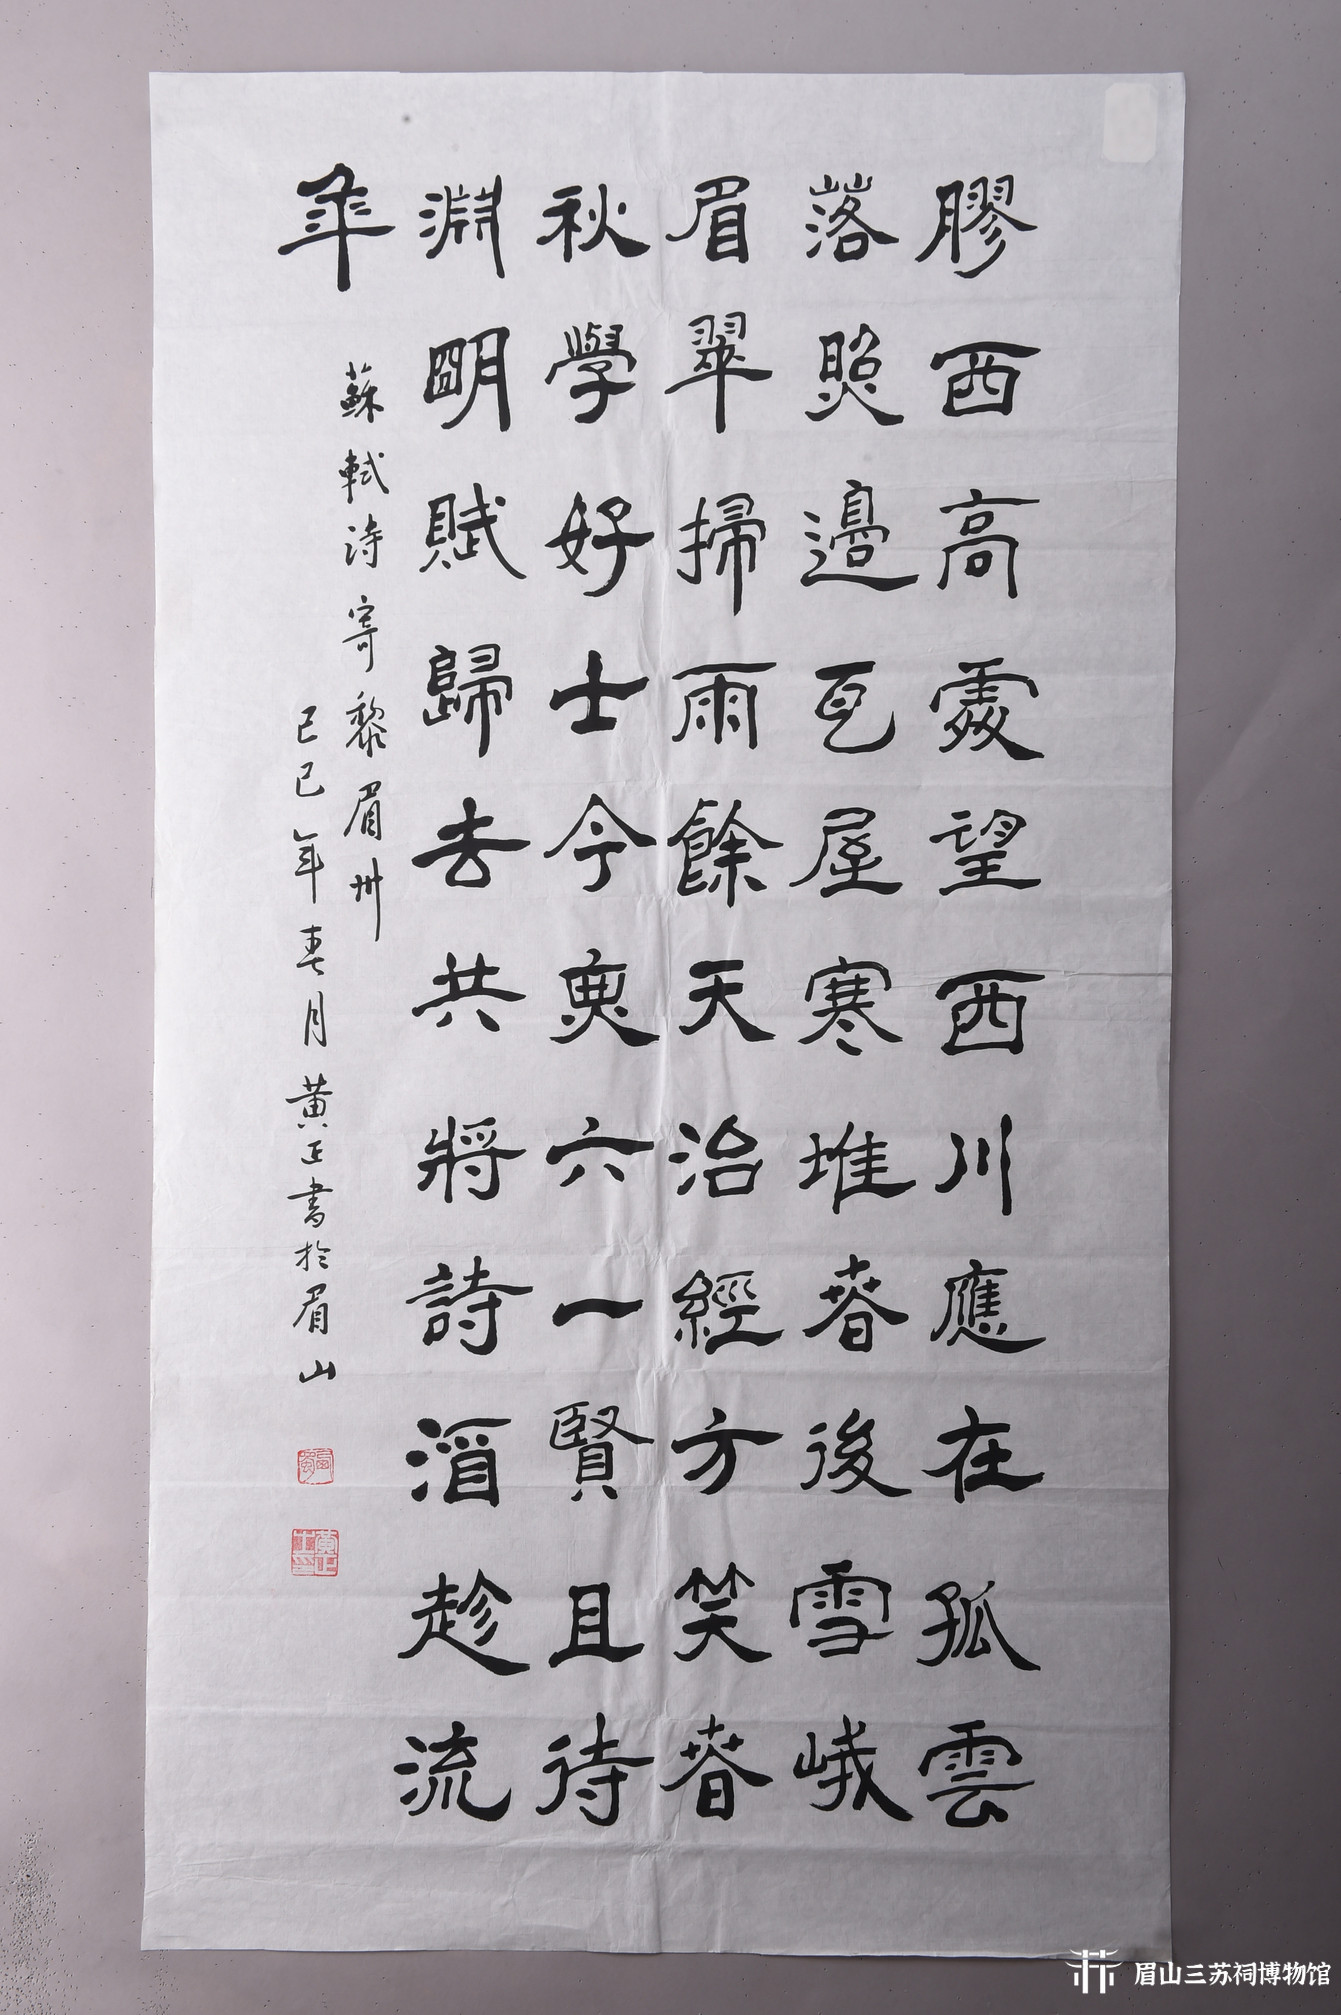 膠西高處望西川應在孤雲
落照邊瓦屋寒堆春後雪峨
眉翠掃雨餘天治經方笑春
秋學好士今無六一賢且待
淵朙賦歸去共將詩酒趁流
年
蘇軾詩寄黎眉州
己巳年春月黄正書於眉山
眉山三苏祠博物馆